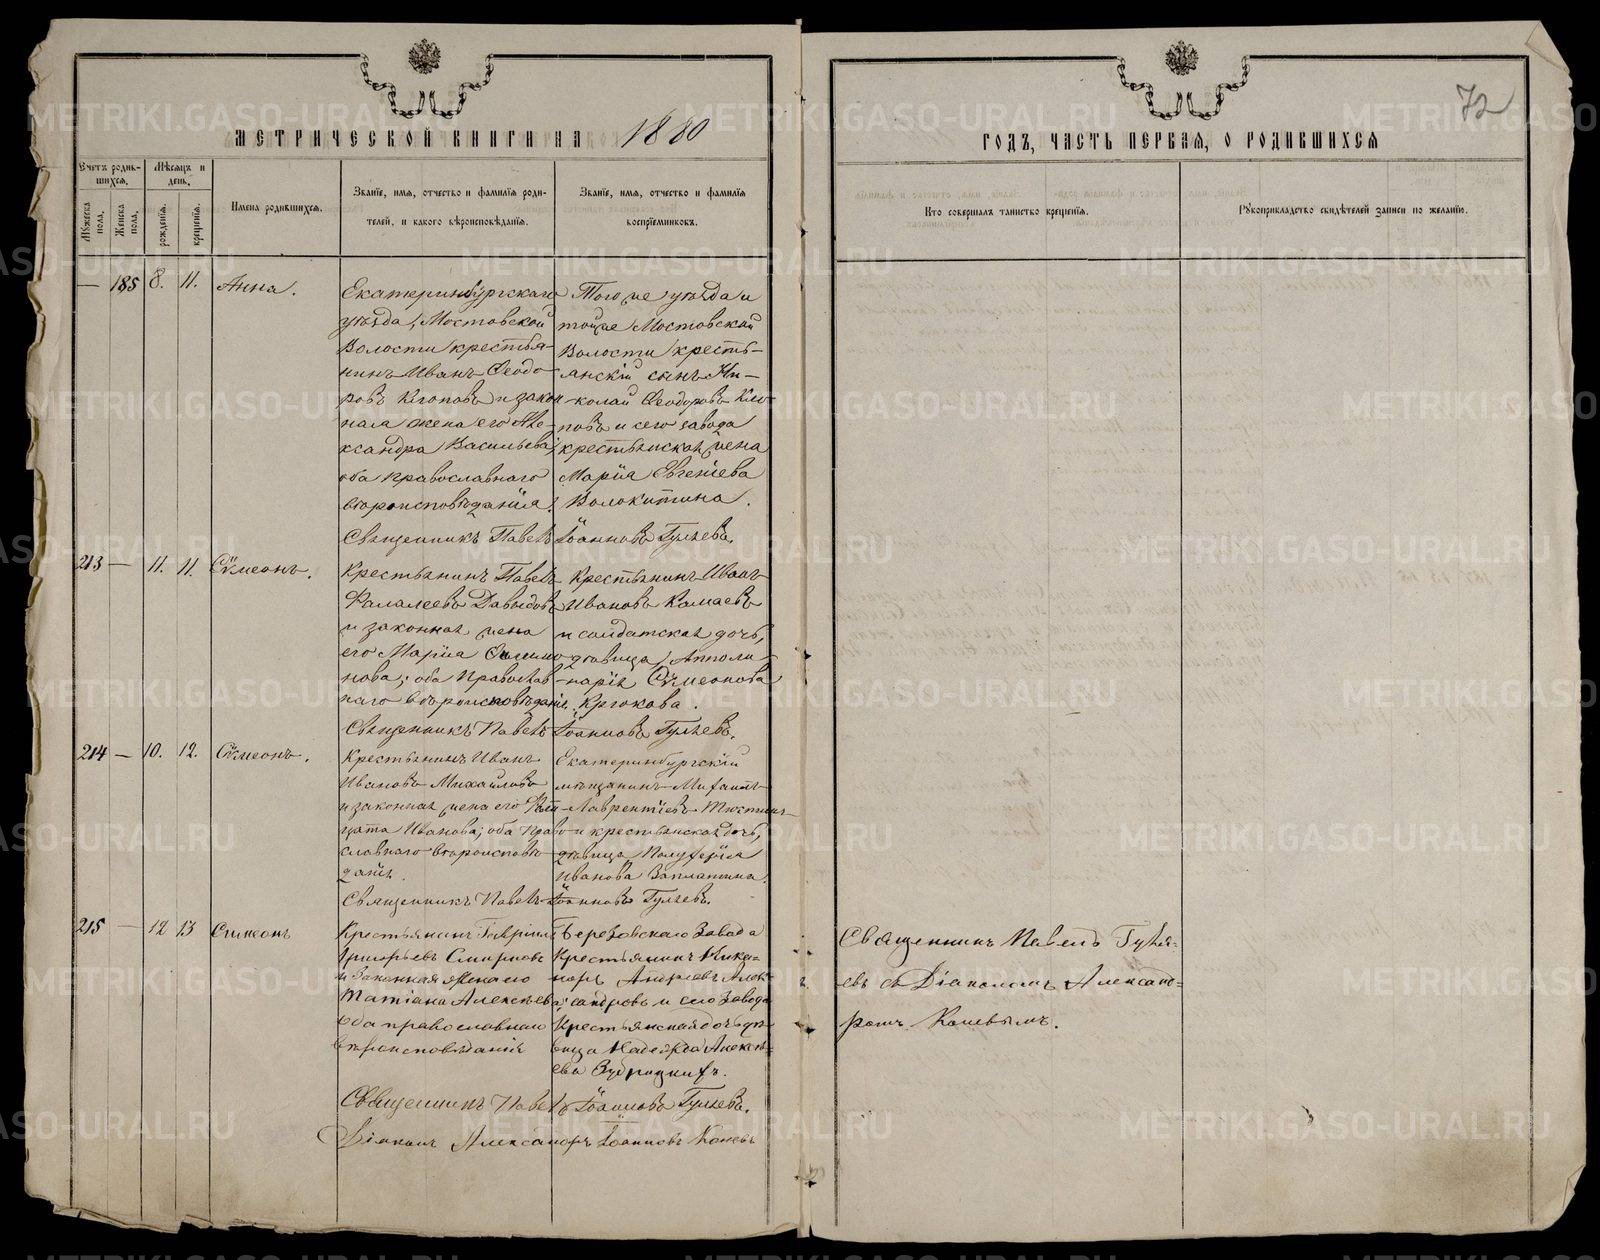 МЕТРИЧЕСКОЙ КНИГИ НА 1880
Счетъ родившихся.
Мужеска пола.
Женска пола.
Мѣсяцъ и день.
рожденія.
крещенія.
Имена родившихся.
Званіе, имя, отчество и фамилія родителей, и какого вѣроисповѣданія.
Званіе, имя, отчество и фамилія воспріемниковъ.
— 185 8. 11. Анна.
Екатеринбургскаго
уѣзда, Мостовской
Волости крестья-
нинъ Иванъ Ѳеодо
ровъ Клоповъ и закон
ная жена его Але-
ксандра Васильева;
оба православнаго
вѣроисповѣданія.
Того же уѣзда и
той же Мостовской
Волости кресть-
янскій сынъ Ни-
колай Ѳеодоровъ Кло-
повъ и сего завода
крестьянская жена
Марія Евгеніева
Волокитина.
Священникъ Павелъ Іоанновъ Гуляевъ.
213 — 11. 11. Сѵмеонъ.
Крестьянинъ Павелъ
Фалалеевъ Давыдовъ
и законная жена
его Марія Филимо
нова; оба Православ-
наго вѣроисповѣданія.
Крестьянинъ Иванъ
Ивановъ Камаевъ
и солдатская дочь,
дѣвица, Апполи-
нарія Сѵмеонова
Крюкова.
Священникъ Павелъ Іоанновъ Гуляевъ.
214 — 10. 12. Сѵмеонъ.
Крестьянинъ Иванъ
Ивановъ Михайловъ
и законная жена его
Иванова; оба Право-
славнаго вѣроисповѣ-
данія.
Екатеринбургскій
мѣщанинъ Михаилъ
Лаврентіевъ
и крестьянская дочь,
дѣвица
Иванова Заплатина.
Священникъ Павелъ Іоанновъ Гуляевъ.
215 — 12 13 Симеонъ
Крестьянинъ Гавріилъ
Григорьевъ Смирновъ
и Законная жена его
Татіана Алексѣева;
оба православнаго
вѣроисповѣданія
Березовскаго Завода
Крестьянинъ Ника-
норъ Андреевъ Алек-
сандровъ и сего Завода
Крестьянская дочь дѣ
вица Надежда Алексѣ-
ева
Священникъ Павелъ Іоанновъ Гуляевъ.
Діаконъ Александръ Іоанновъ Коневъ
72
ГОДЪ, ЧАСТЬ ПЕРВАЯ, О РОДИВШИХСЯ
Кто совершалъ таинство крещенія.
Рукоприкладство свидѣтелей записи по желанію.
Священникъ Павелъ Гуля-
евъ съ Діакономъ Александ-
ромъ Коневымъ.
METRIKI.GASO-URAL.RU